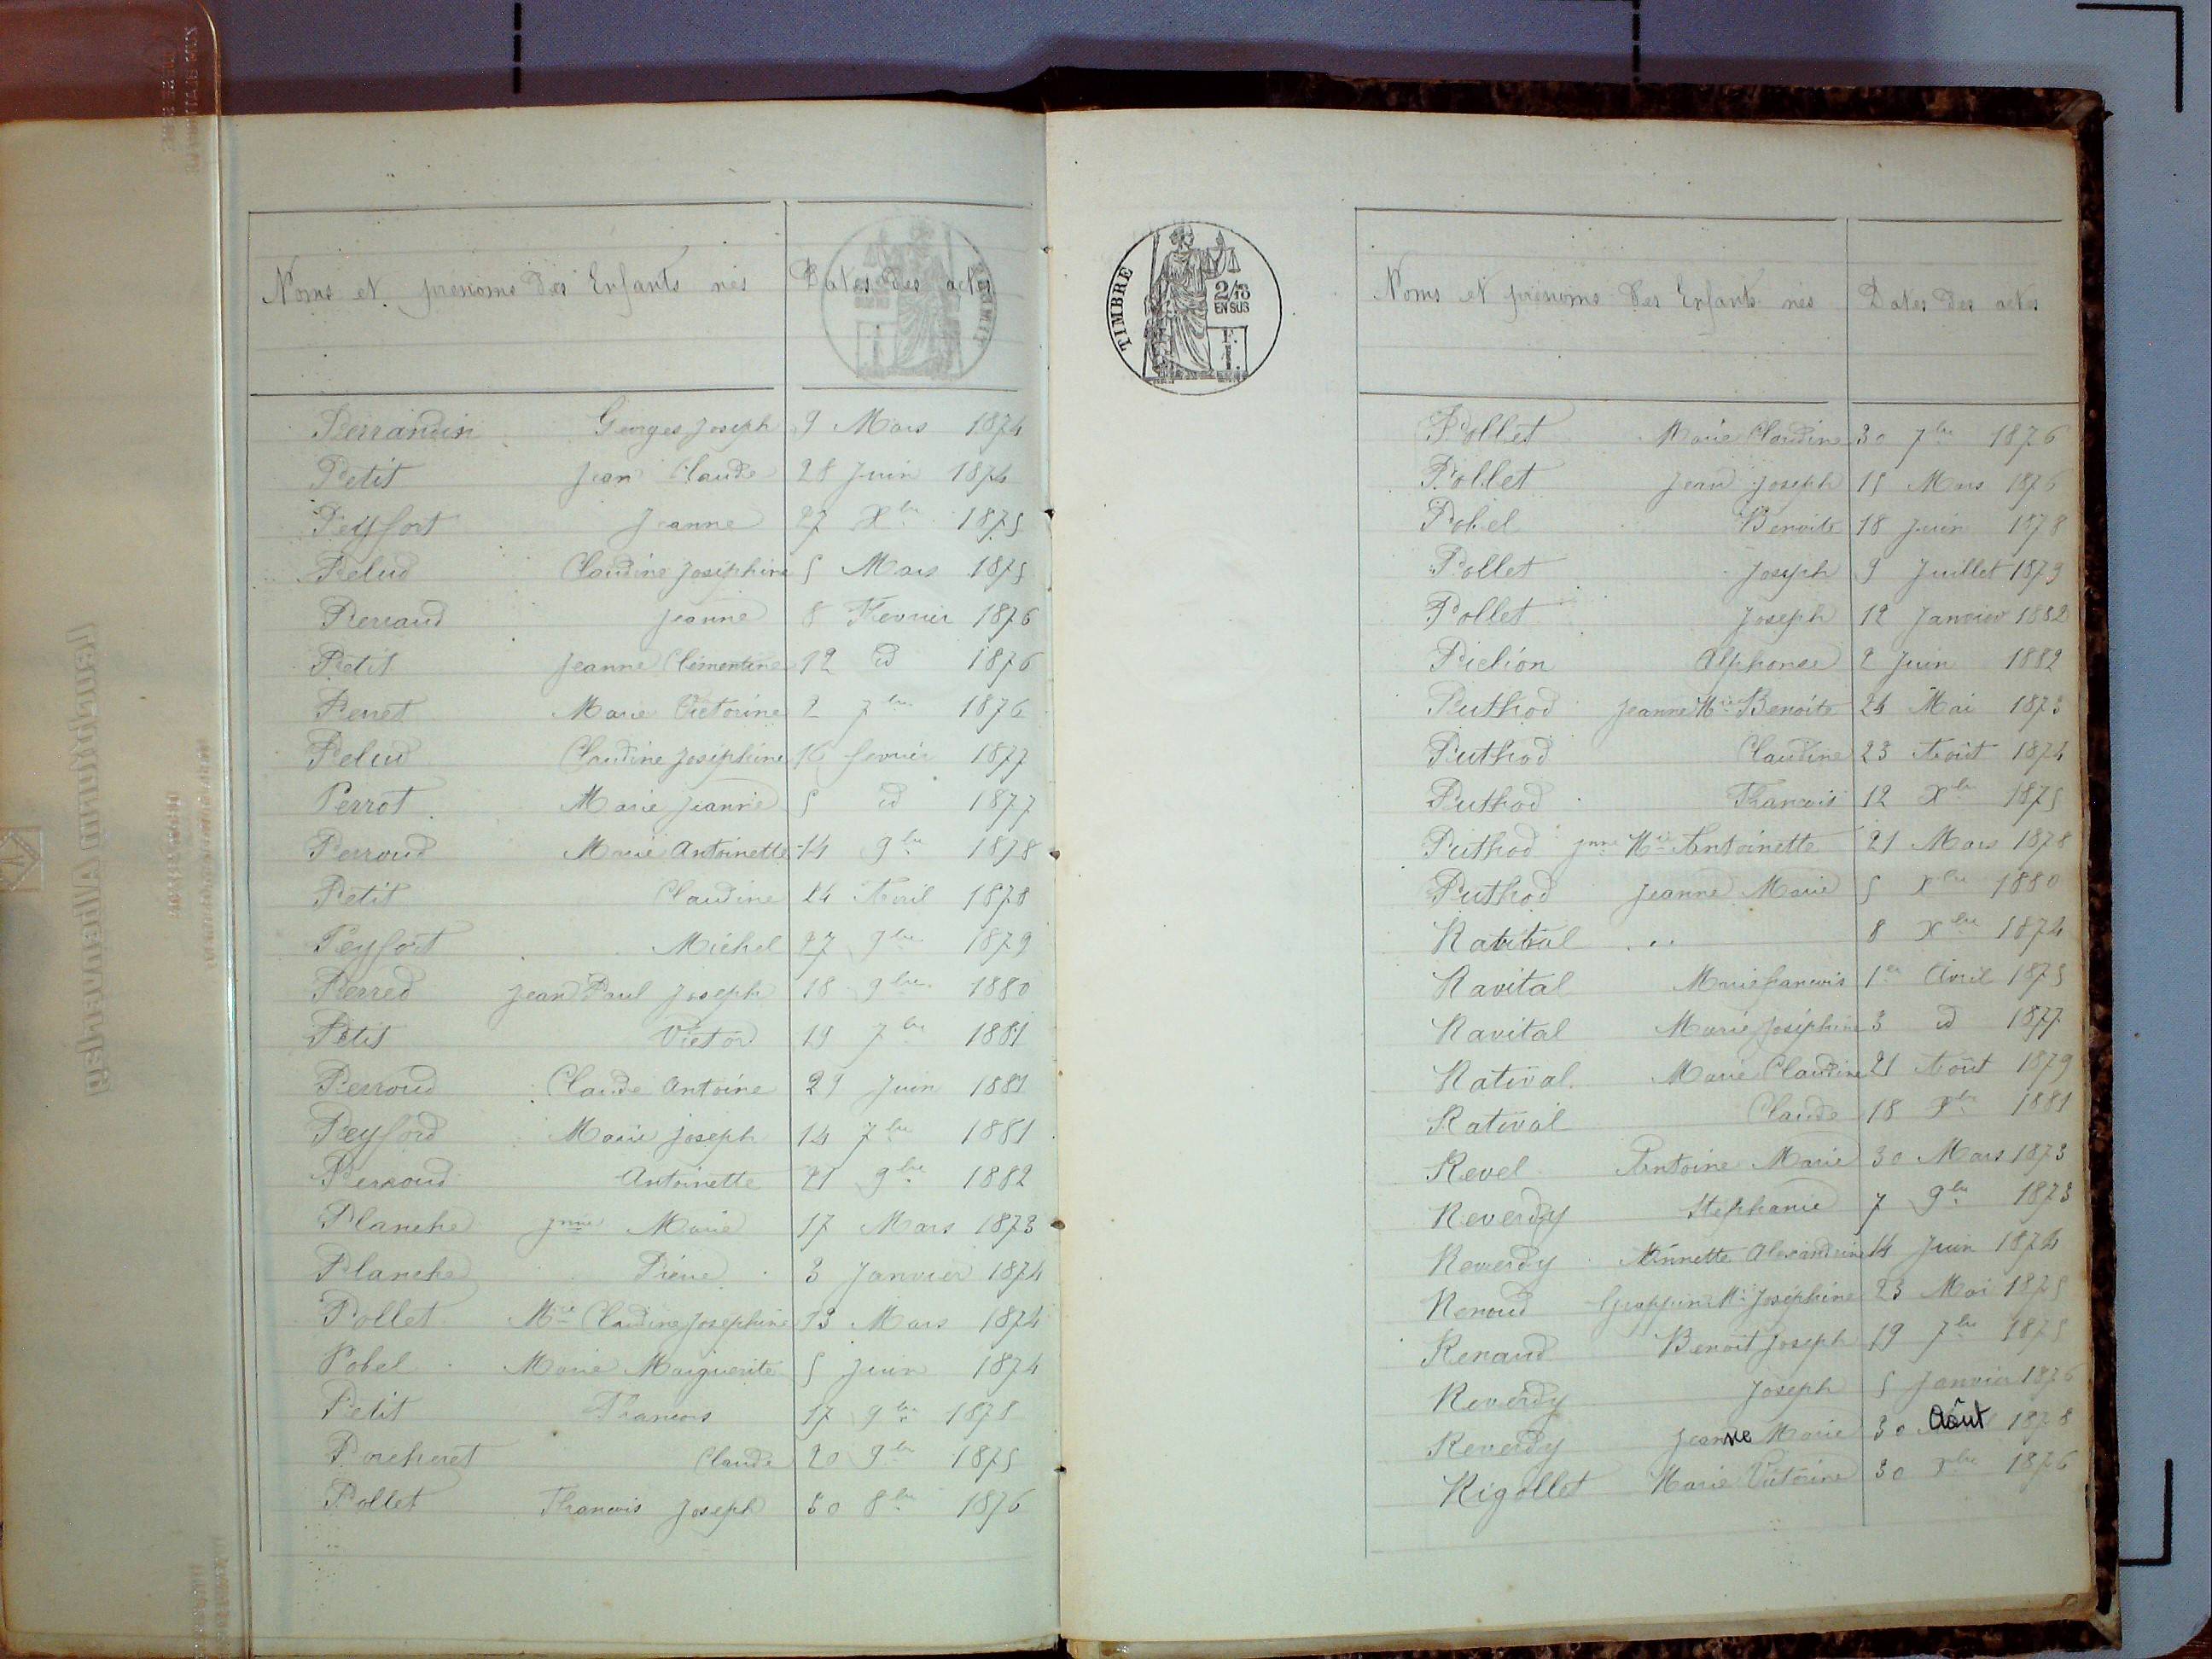 Noms et prénoms des Enfants nés Dates des actes
Perrandin Georges Joseph 9 Mars 1874
Petit Jean Claude 28 Juin 1874
Peyfort Jeanne 27 Xbre 1875
Pelud Claudine Joséphine 5 Mars 1875
Perraud Jeanne 8 Fevrier 1876
Petit Jeanne Clémentine 12 id 1876
Perret Marie Victorine 2 7bre 1876
Pelud Claudine Joséphine 16 fevrier 1877
Perrot Marie Jeanne 5 id 1877
Perroud Marie Antoinette 14 9bre 1878
Petit Claudine 24 Avril 1878
Peyfort Michel 27 9bre 1879
Perred Jean Paul Joseph 18 9bre 1880
Petit Victor 19 7bre 1881
Perroud Claude Antoine 29 Juin 1881
Peyford Marie Joseph 14 7bre 1881
Perroud Antoinette 21 9bre 1882
Planche Jnne Marie 17 Mars 1873
Planche Pierre 3 Janvier 1874
Pollet Mie Claudine Josephine 13 Mars 1874
Pobel Marie Marguerite 5 Juin 1874
Petit Francois 17 9bre 1878
Porcheret Claude 20 9bre 1875
Pollet Francois Joseph 30 8bre 1876
TIMBRE
2/10
EN SUS
F.
1.
Noms et prénoms des Enfants nés Dates des actes
Pollet Marie Claudine 30 7bre 1876
Pollet Jean Joseph 15 Mars 1876
Pobel Benoite 18 Juin 1878
Pollet Joseph 9 Juillet 1879
Pollet Joseph 12 Janvier 1882
Pichon Alphonse 2 Juin 1882
Puthod Jeanne Mie Benoite 24 Mai 1873
Puthod Claudine 23 Août 1874
Puthod Francois 12 Xbre 1875
Puthod Jnne Mie Antoinette 21 Mars 1878
Puthod Jeanne Marie 5 Xbre 1880
8 Xbre 1874
Ravital Marie francois 1er Avril 1875
Ravital Marie Joséphine 3 id 1877
Ratival Marie Claudine 21 Août 1879
Ratival Claude 18 Xbre 1881
Revel Antoine Marie 30 Mars 1873
Reverdy Stephanie 7 9bre 1873
Reverdy Annette Alexandrine 14 Juin 1874
Renoud Mie Joséphine 23 Mai 1875
Renaud Benoit Joseph 19 7bre 1875
Reverdy Joseph 5 Janvier 1876
Reverdy Jeanne Marie 30 Aôut 1878
Rigollet Marie Victorine 30 Xbre 1876